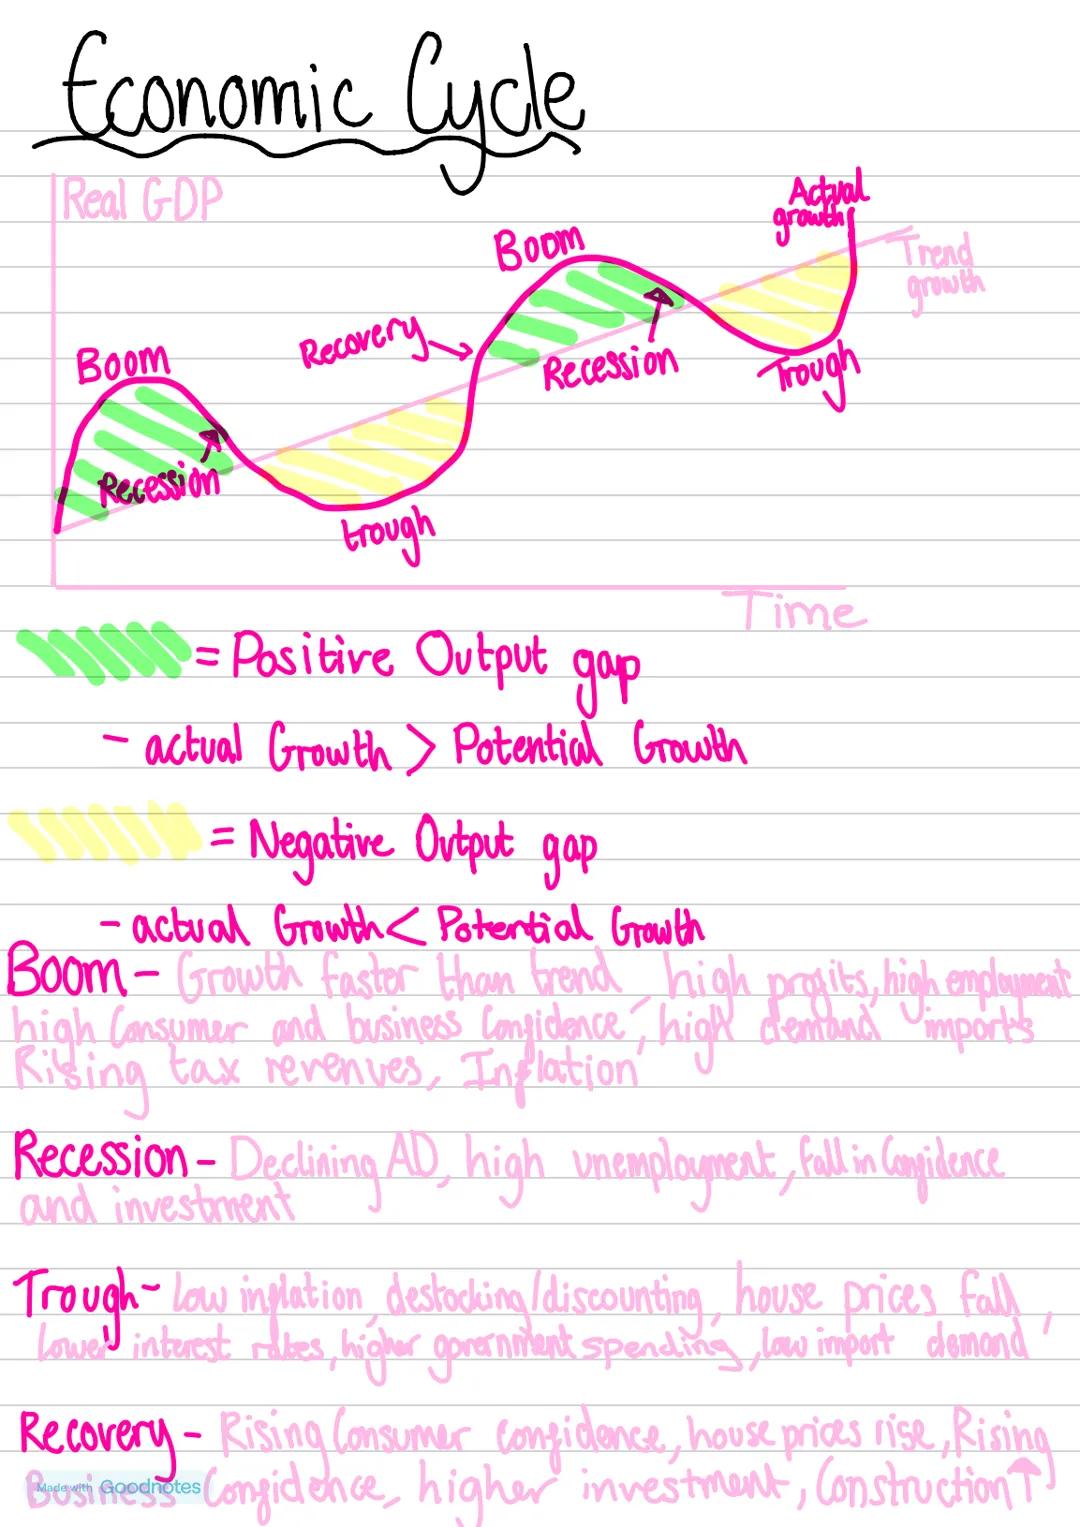 Economic Cycle
Real GDP
Actual
growth
Trend
growth
Boom
Recovery
Recession
Trough
Boom
Recession
trough
Time
= Positive Output gap
- actual Growth > Potential Growth
= Negative Output gap
- actual Growth < Potential Growth
Boom - Growth faster than trend, high profits, high employment
high Consumer and business Confidence, high demand imports
Rising tax revenues, Inflation
Recession - Declining AD, high unemployment, fall in Confidence
and investment
Trough - low inflation, destocking/discounting, house prices fall,
lower interest rates, higher government spending, low import demand
Recovery - Rising Consumer confidence, house prices rise, Rising
Business Confidence, higher investment, Construction ↑
Made with Goodnotes